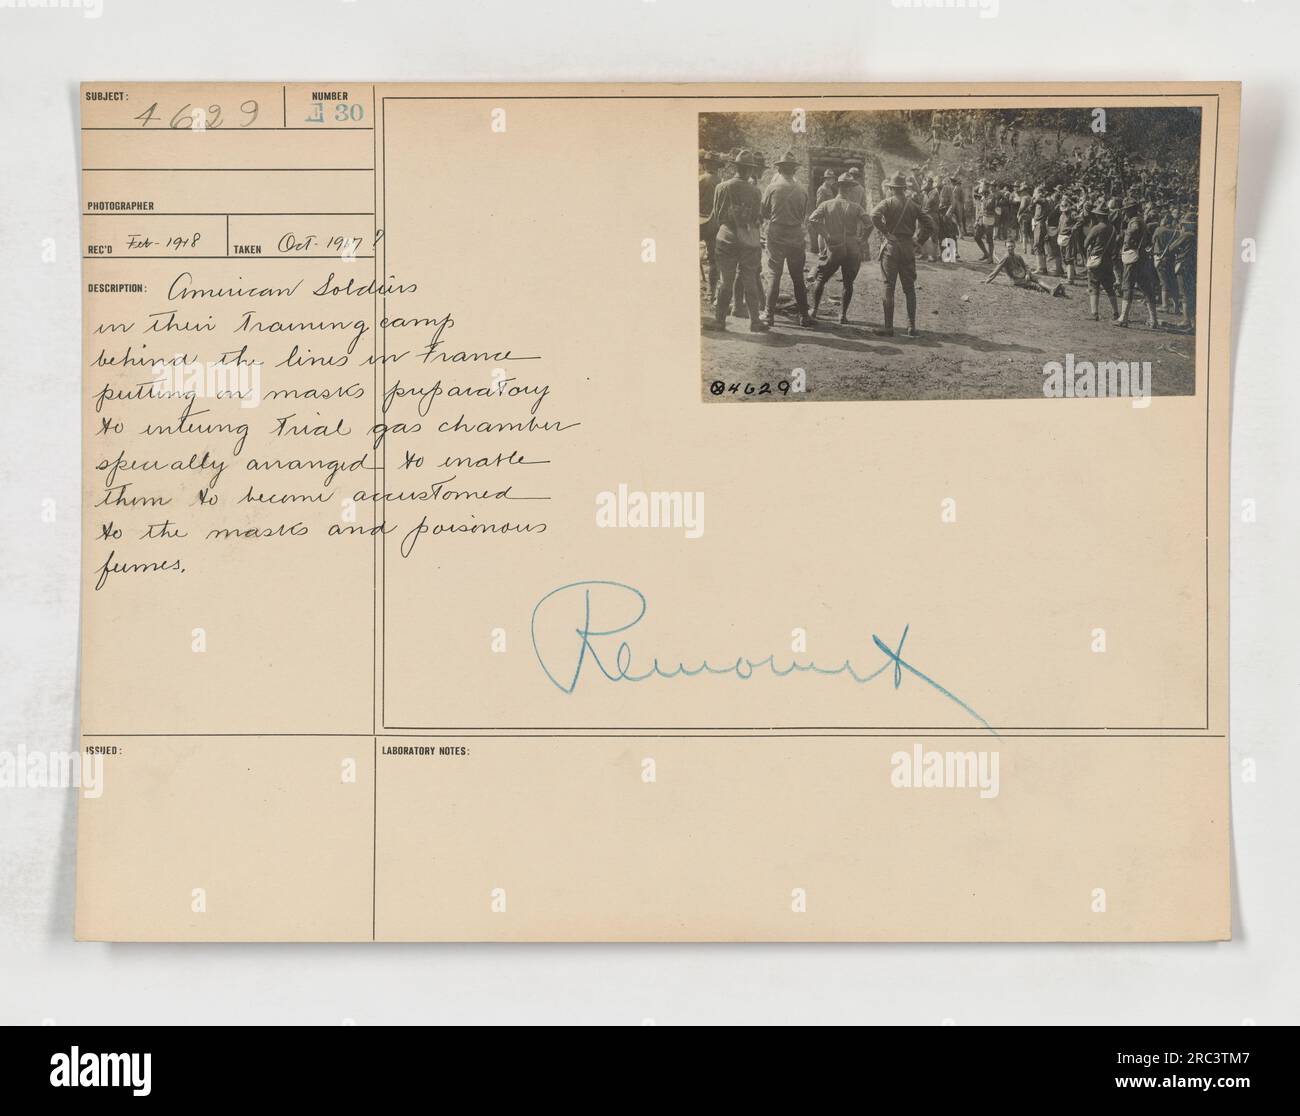 SUBJECT: 4629
NUMBER
E 30
PHOTOGRAPHER
REC'D Feb-1918
TAKEN Oct-1917?
DESCRIPTION: American Soldiers
in their training camp
behind the lines in France
putting on masks preparatory
to entering trial gas chamber
specially arranged to enable
them to become accustomed
to the masks and poisonous
fumes.
4629
Remount
ISSUED:
LABORATORY NOTES:
alamy
alamy
Image ID: 2RC3TM7
www.alamy.com